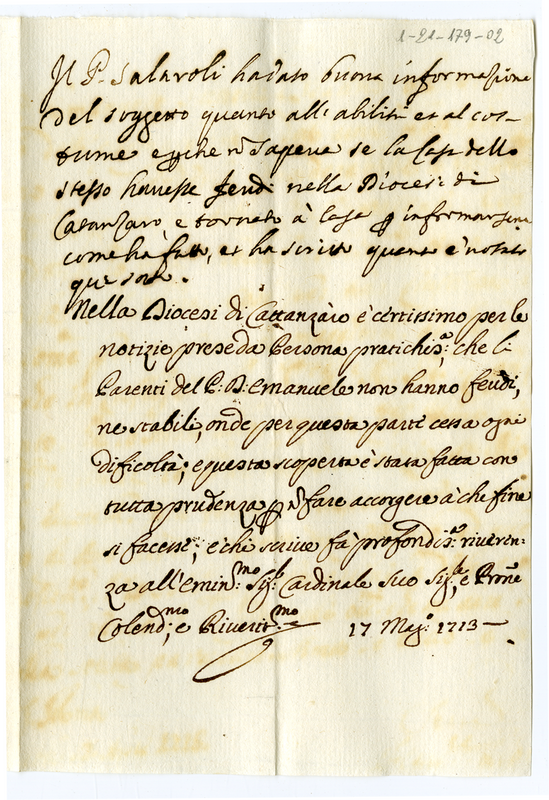 1-21-179-02
Il P. Salaroli ha dato buona informazione
del soggetto quanto all'abilità et al cos-
tume e perche nõ sapeva se la Casa dello
stesso havesse feudi nella Diocesi di
Catanzaro, e tornato à Casa p informarsene
come ha fatto, et ha scritto quanto è notato
qui sotto.
Nella Diocesi di Cattanzaro è certissimo per le
notizie prese da Persona pratichis:ª, che li
Parenti del P: D: Emanuele non hanno feudi,
ne stabili, onde per questa parte cessa ogni
dificoltà; e questa scoperta è stata fatta con
tutta prudenza p nõ fare accorgere à che fine
si facesse; e chi scrive fà profondis:ª riveren:
za all'Emin:mo Sig:e Cardinale suo Sig:e, e Prone
Colend:mo, e Riverit:mo 17 Mag:o 1713